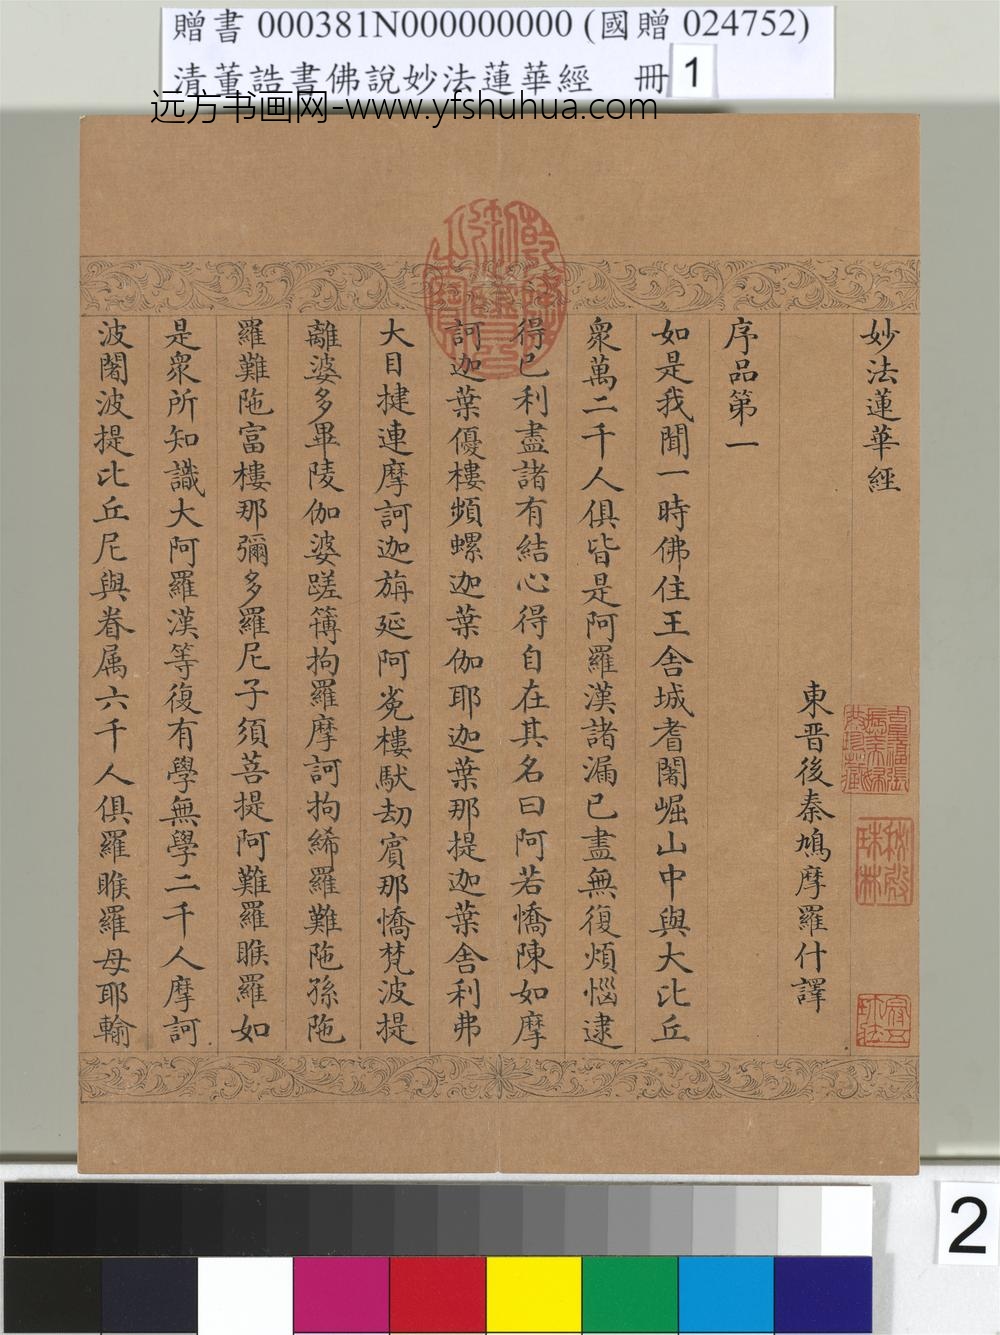 贈書 000381N000000000 (國贈 024752)
清董誥書佛說妙法蓮華經 冊 1
远方书画网-www.yfshuhua.com
妙法蓮華經
東晋後秦鳩摩羅什譯
序品第一
如是我聞一時佛住王舍城耆闍崛山中與大比丘
衆萬二千人俱皆是阿羅漢諸漏已盡無復煩惱逮
得已利盡諸有結心得自在其名曰阿若憍陳如摩
訶迦葉優樓頻螺迦葉伽耶迦葉那提迦葉舍利弗
大目揵連摩訶迦旃延阿㝹樓馱劫賓那憍梵波提
離婆多畢陵伽婆蹉簿拘羅摩訶拘絺羅難陁孫陁
羅難陁富樓那彌多羅尼子須菩提阿難羅睺羅如
是衆所知識大阿羅漢等復有學無學二千人摩訶
波闍波提比丘尼與眷属六千人俱羅睺羅母耶輸
2